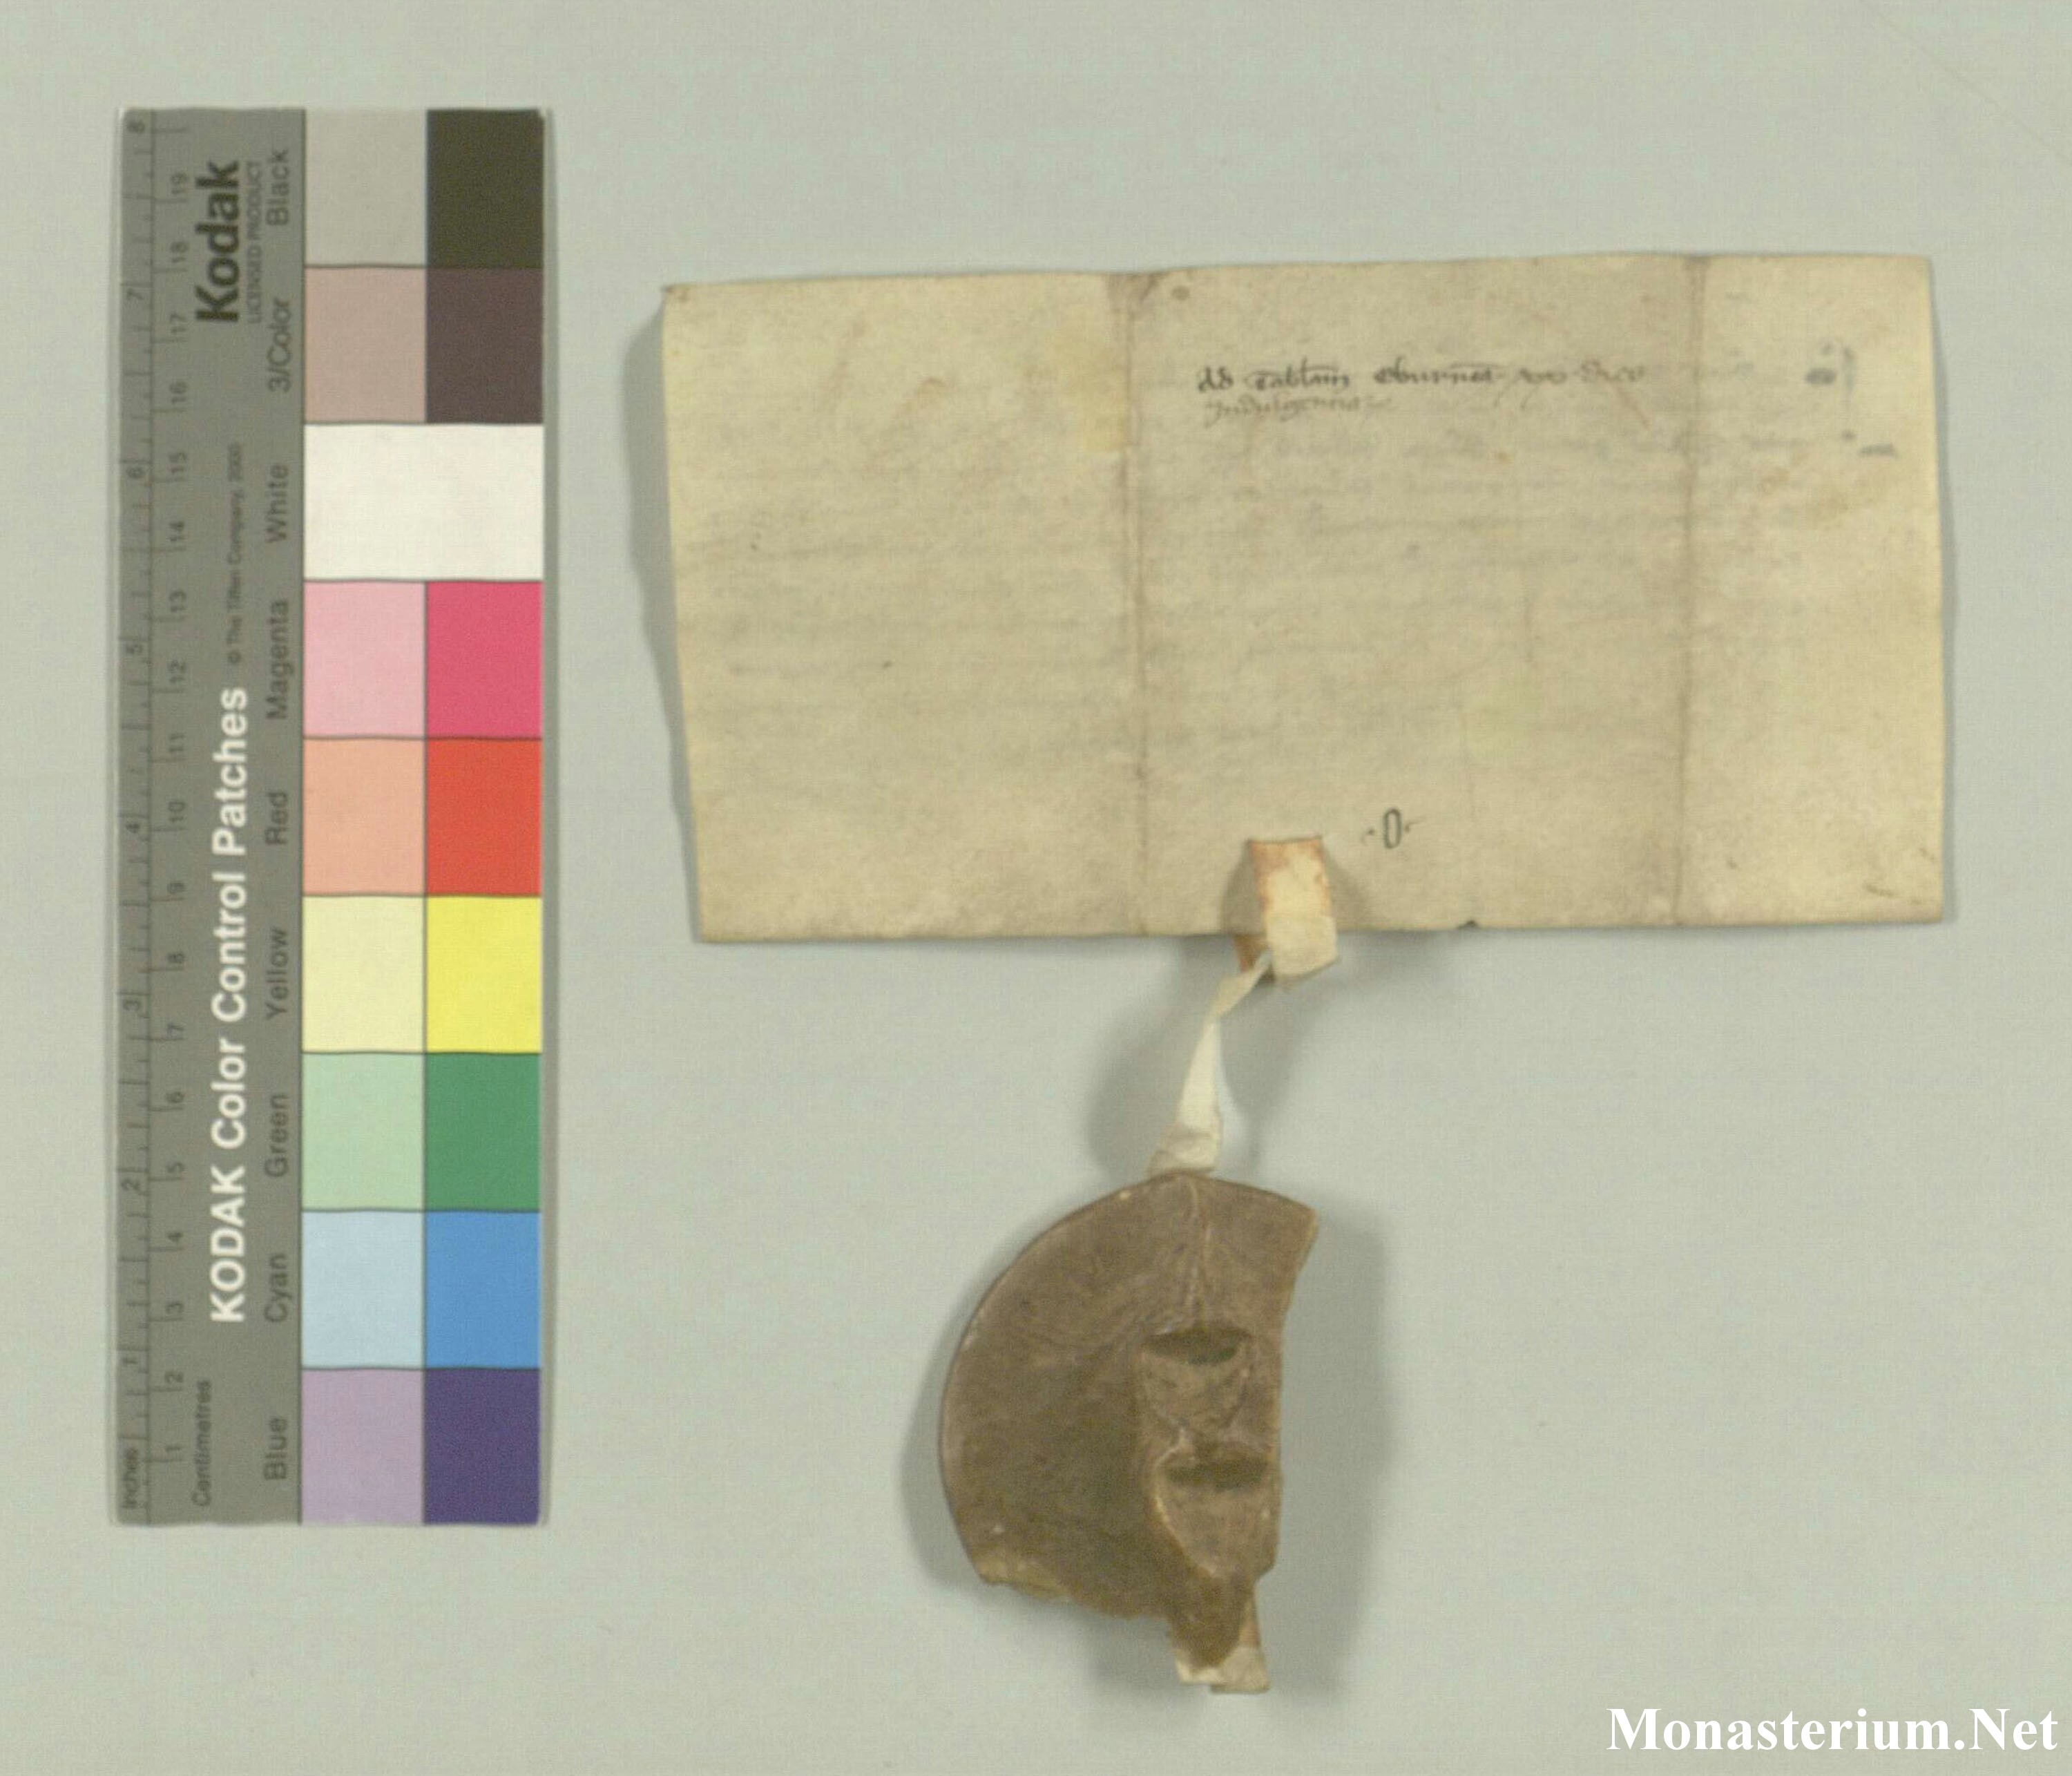 8
7
6
5
4
3
2
1
Inches
19
18
17
16
15
14
13
12
11
10
9
8
7
6
5
4
3
2
1
Centimetres
Kodak
LICENSED PRODUCT
© The Tiffen Company, 2000
KODAK Color Control Patches
Black
3/Color
White
Magenta
Red
Yellow
Green
Cyan
Blue
ad tablam eburnea
Indulgencia
.O.
Monasterium.Net